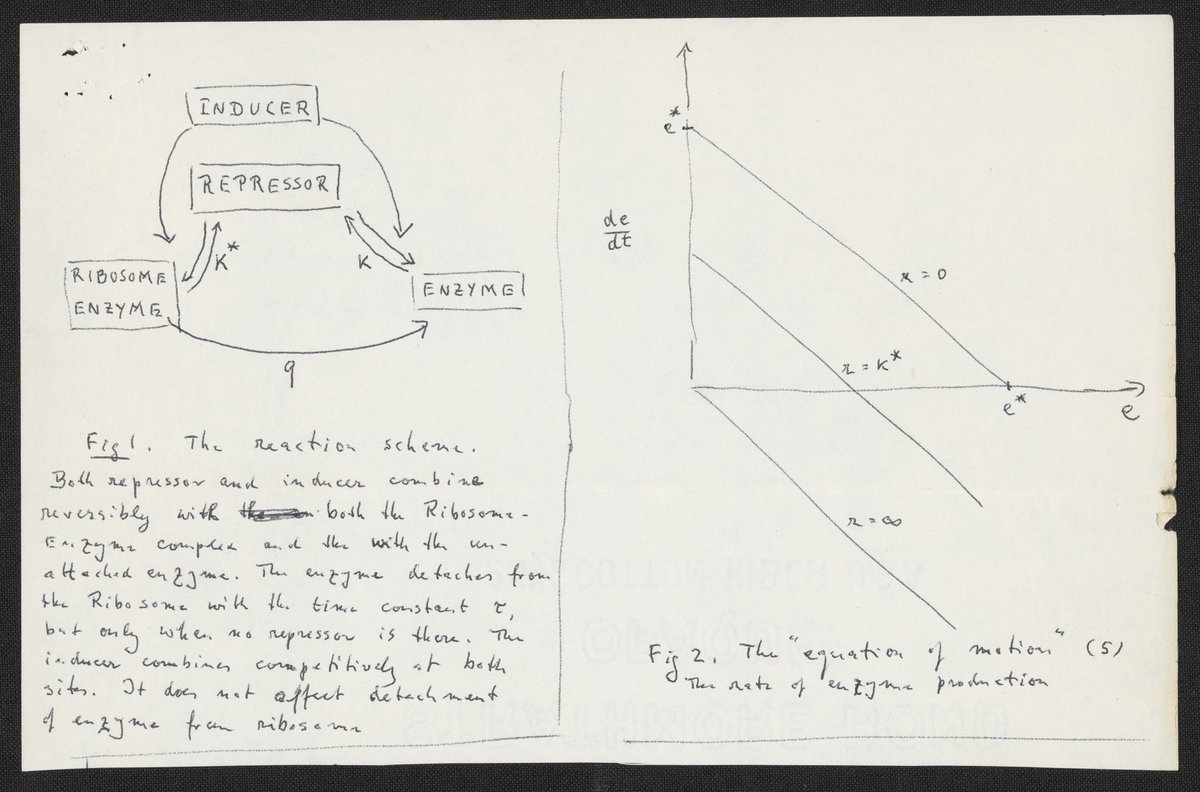 INDUCER
REPRESSOR
K*
K
RIBOSOME
ENZYME
ENZYME
q
Fig 1. The reaction scheme.
Both repressor and inducer combine
reversibly with both the Ribosome-
Enzyme complex and the with the un-
attached enzyme. The enzyme detaches from
the Ribosome with the time constant τ,
but only when no repressor is there. The
inducer combines competitively at both
sites. It does not affect detachment
of enzyme from ribosome
e*
de
dt
r = 0
r = K*
e*
e
r = ∞
Fig 2. The "equation of motion" (5)
The rate of enzyme production